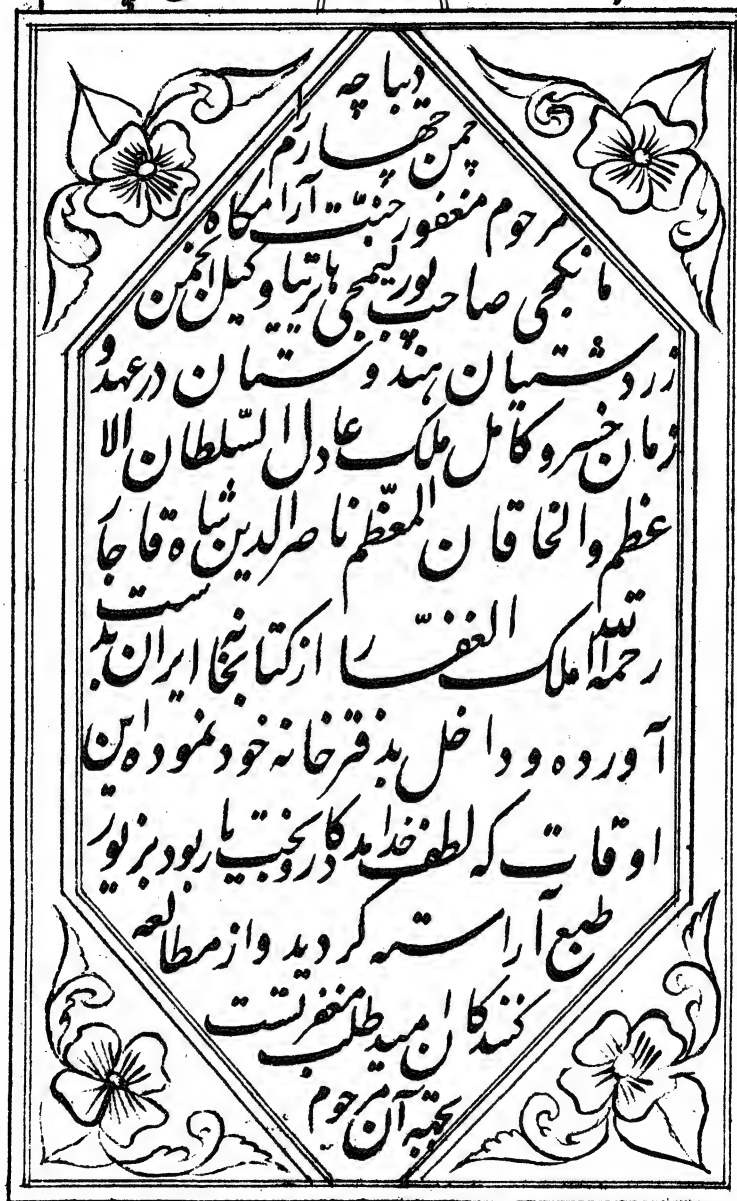 دیباچه
چمن چهارم
مرحوم مغفور جنّت آرامگاه
مانکجی صاحب پور لیمجی هاتریا وکیل انجمن
زردشتیان هندوستان در عهد و
زمان خسرو کامل ملک عادل السّلطان الا
عظم والخاقان المعظّم ناصرالدین شاه قاجار
رحمة الله الملک الغفّار از کتابخانه ایران بدست
آورده و داخل بدفترخانه خود نموده این
اوقات که لطف خدا مددکار و بخت یار بود بزیور
طبع آراسته گردید و از مطالعه
کنندگان امید طلب مغفرتست
بجهته آن مرحوم